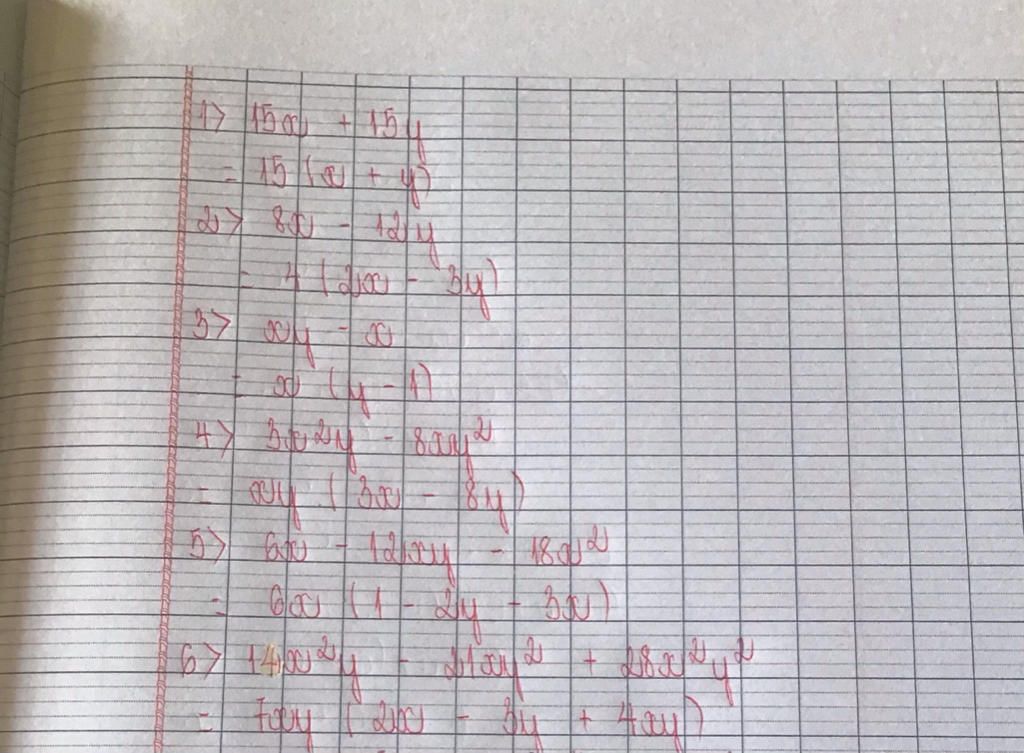 1> 15x + 15y
= 15 (x + y)
2> 8x - 12y
= 4 (2x - 3y)
3> xy - x
= x (y - 1)
4> 3x²y - 8xy²
= xy (3x - 8y)
5> 6x - 12xy - 18x²
= 6x (1 - 2y - 3x)
6> 14x²y - 21xy² + 28x²y²
= 7xy (2x - 3y + 4xy)